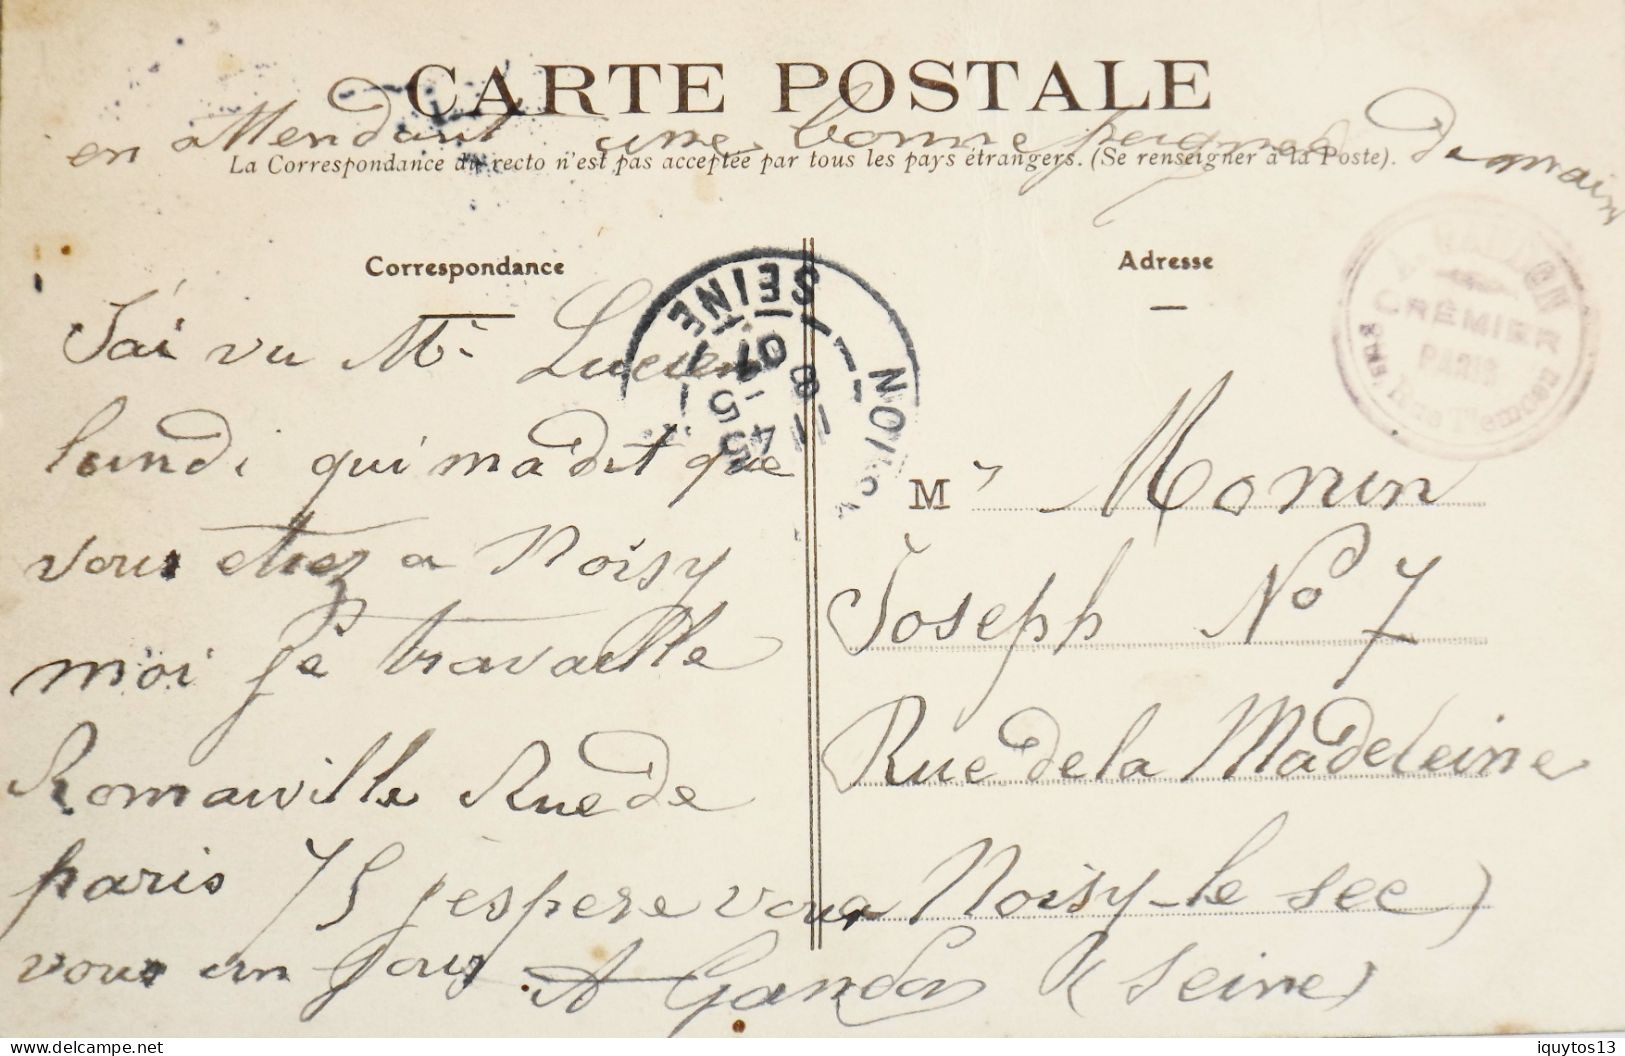 CARTE POSTALE
en attendant une bonne poignee Demain
La Correspondance au recto n'est pas acceptée par tous les pays étrangers. (Se renseigner à la Poste).
Correspondance
J'ai vu Mr Lucien
lundi qui ma dit que
vous etiez a Noisy
moi je travaille
Romainville Rue de
paris 75 j'espere vous
vous un jour A Gandon
Adresse
M r Monin
Joseph No 7
Rue de la Madeleine
Noisy-le sec
(Seine)
NOISY
SEINE
5 45
8 - 1
07
CRÉMIER
PARIS
delcampe.net
iquytos13